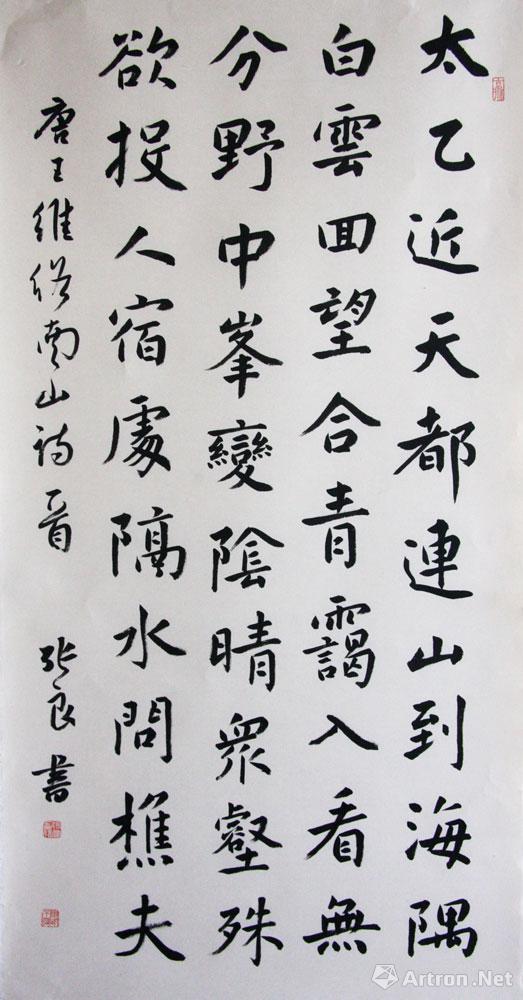 太乙近天都連山到海隅
白雲回望合青靄入看無
分野中峯變陰晴眾壑殊
欲投人宿處隔水問樵夫
唐王維終南山詩一首 張良書
Artron.Net